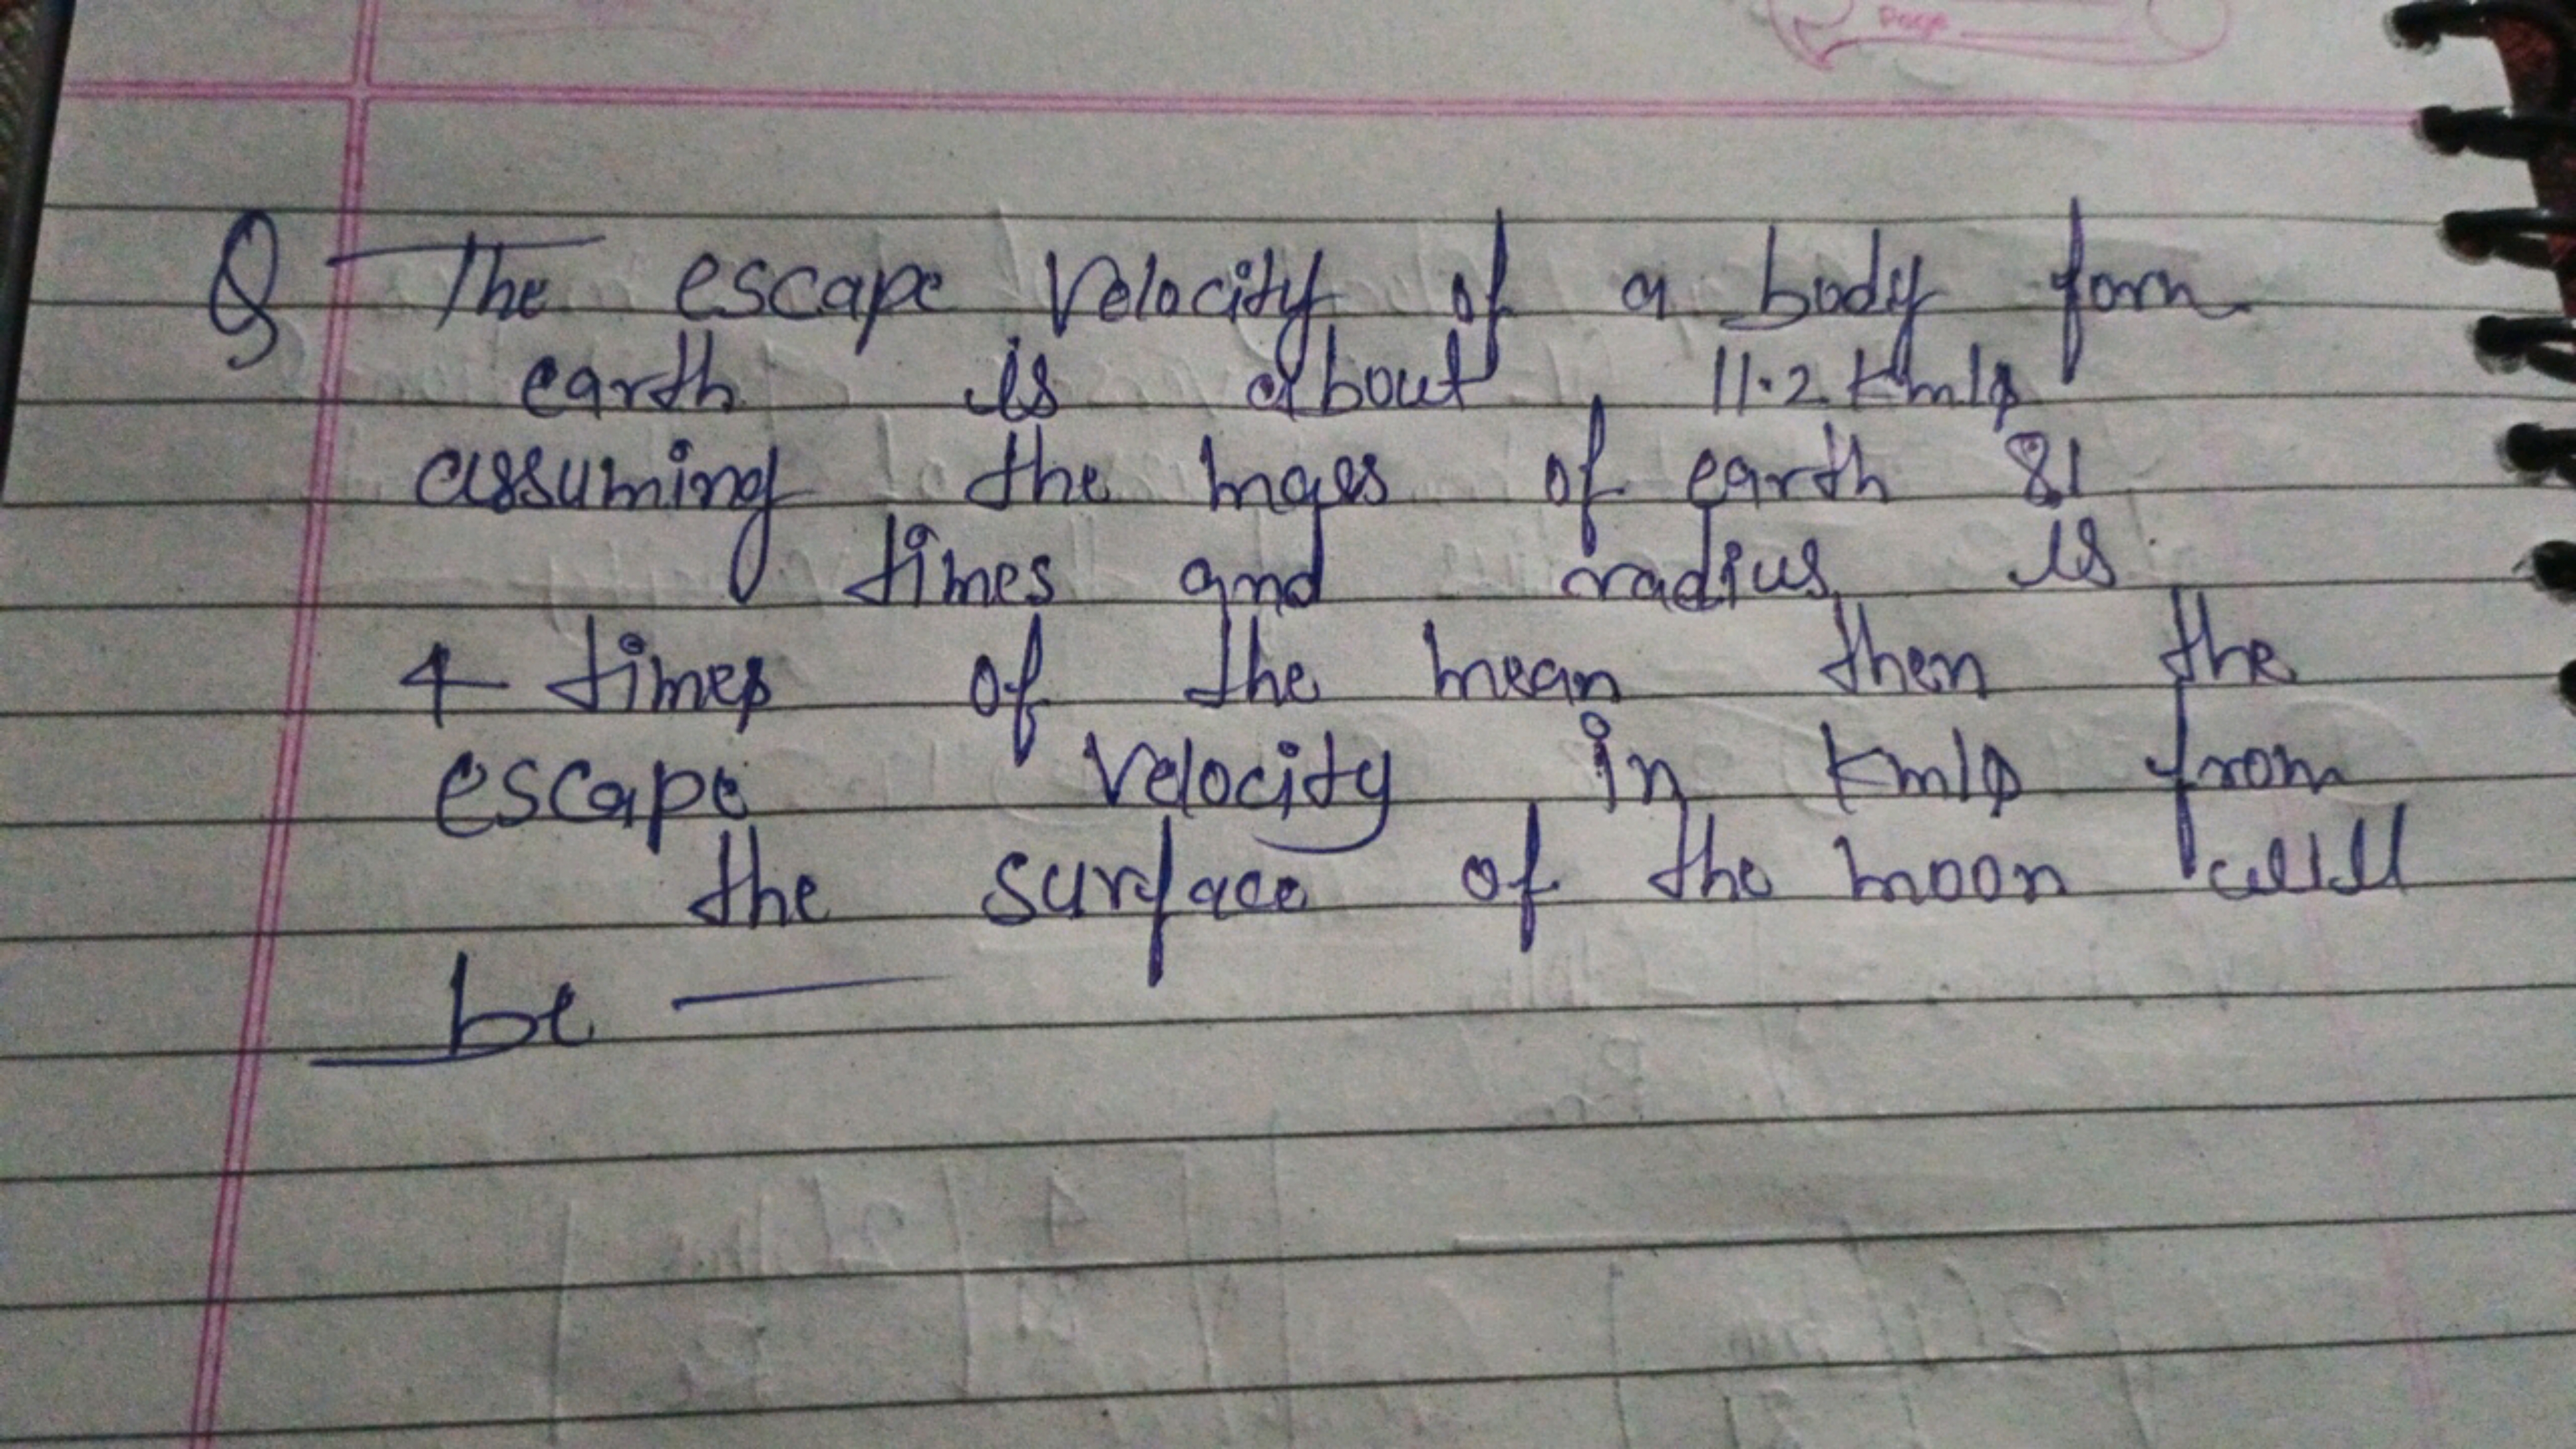 Page
Q The escape velocity of a body form
earth is about 11.2 Km/s
assuming the mass of earth 81
times and radius is
4 times of the mean then the
escape velocity in Km/s from
the surface of the moon will
be —